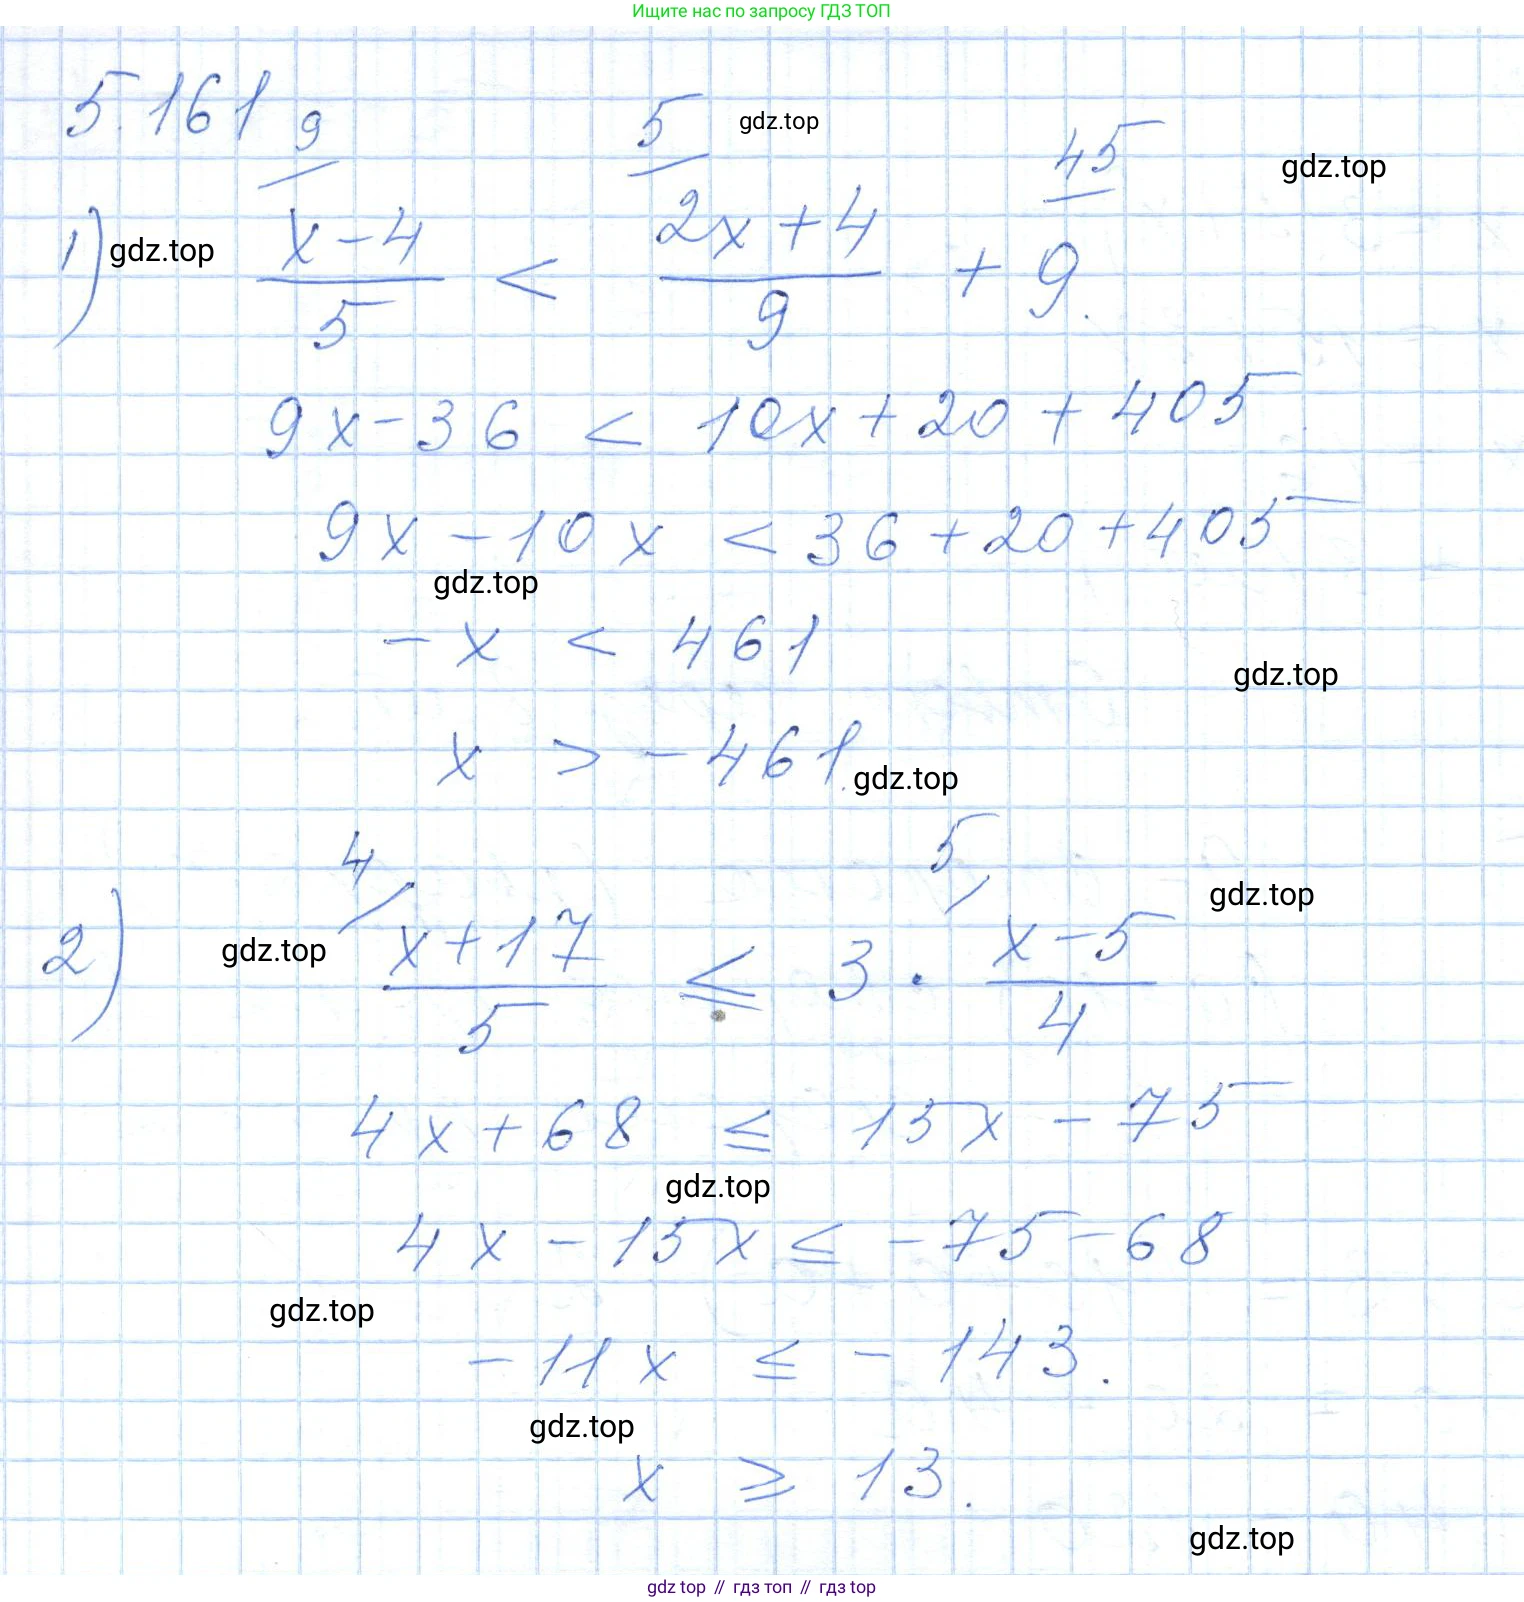 Ищите нас по запросу ГДЗ ТОП
5.161
9 5 gdz.top 45 gdz.top
1) gdz.top (x-4)/5 < (2x+4)/9 + 9.
9x-36 < 10x+20+405.
9x-10x < 36+20+405
gdz.top
-x < 461
gdz.top
x > -461. gdz.top
4 5 gdz.top
2) gdz.top (x+17)/5 ≤ 3 · (x-5)/4
4x+68 ≤ 15x-75
gdz.top
4x-15x ≤ -75-68
gdz.top
-11x ≤ -143.
gdz.top
x ≥ 13.
gdz.top
gdz top // гдз топ // гдз top